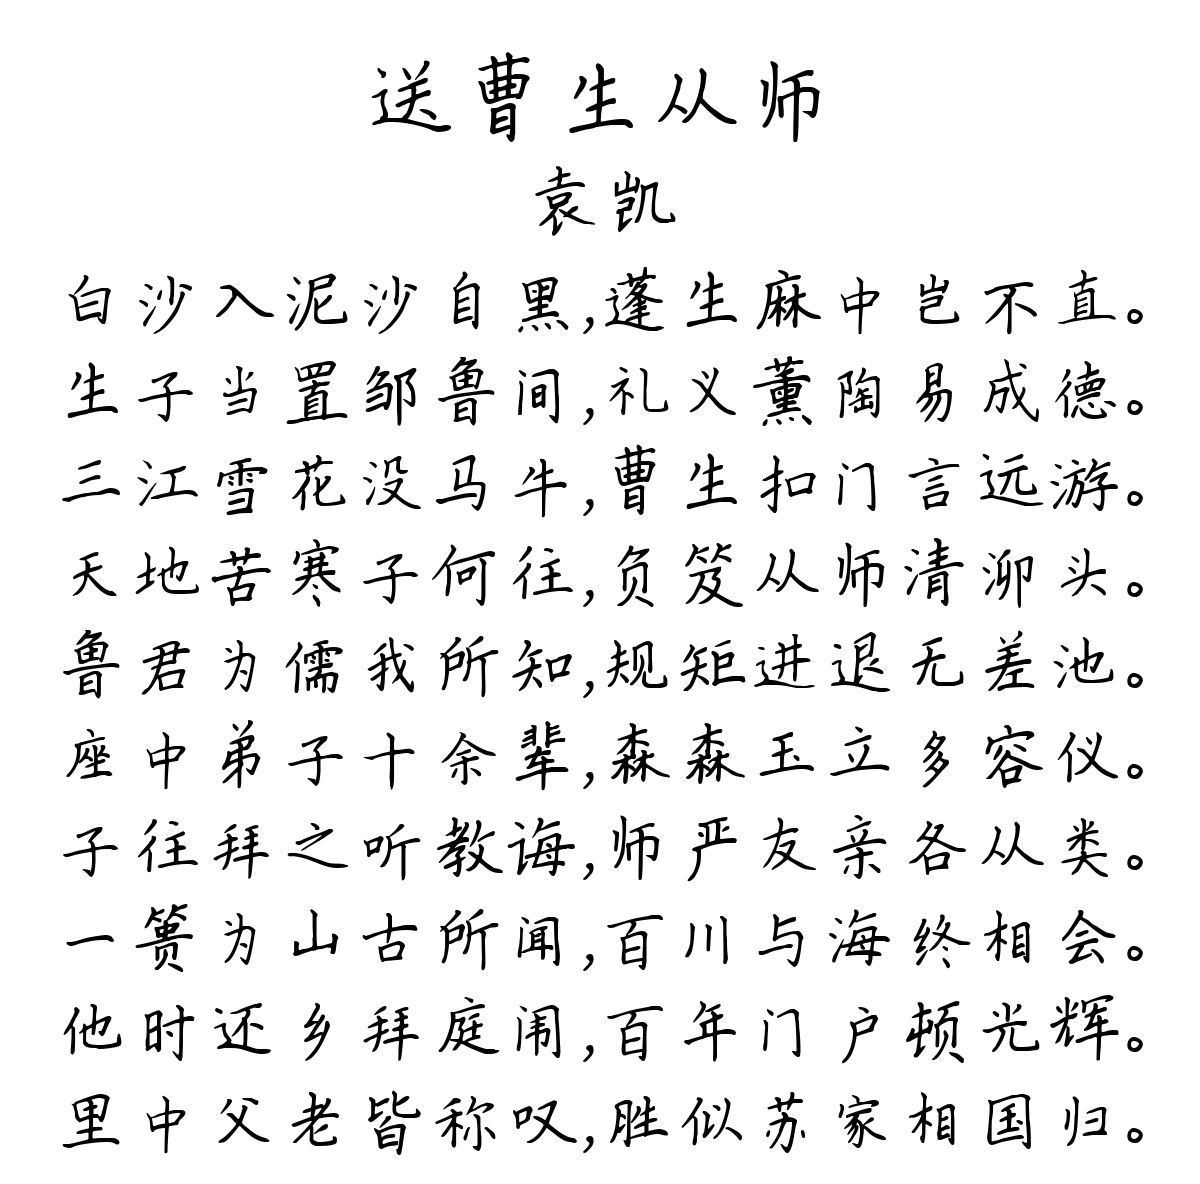 送曹生从师
袁凯
白沙入泥沙自黑,蓬生麻中岂不直。
生子当置邹鲁间,礼义薰陶易成德。
三江雪花没马牛,曹生扣门言远游。
天地苦寒子何往,负笈从师清泖头。
鲁君为儒我所知,规矩进退无差池。
座中弟子十余辈,森森玉立多容仪。
子往拜之听教诲,师严友亲各从类。
一篑为山古所闻,百川与海终相会。
他时还乡拜庭闱,百年门户顿光辉。
里中父老皆称叹,胜似苏家相国归。